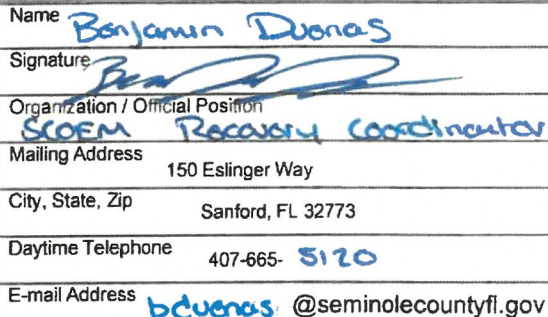 Name Benjamin Duenas
Signature
Organization / Official Position
SCOEM Recovery Coordinator
Mailing Address 150 Eslinger Way
City, State, Zip Sanford, FL 32773
Daytime Telephone 407-665- 5120
E-mail Address bduenas @seminolecountyfl.gov